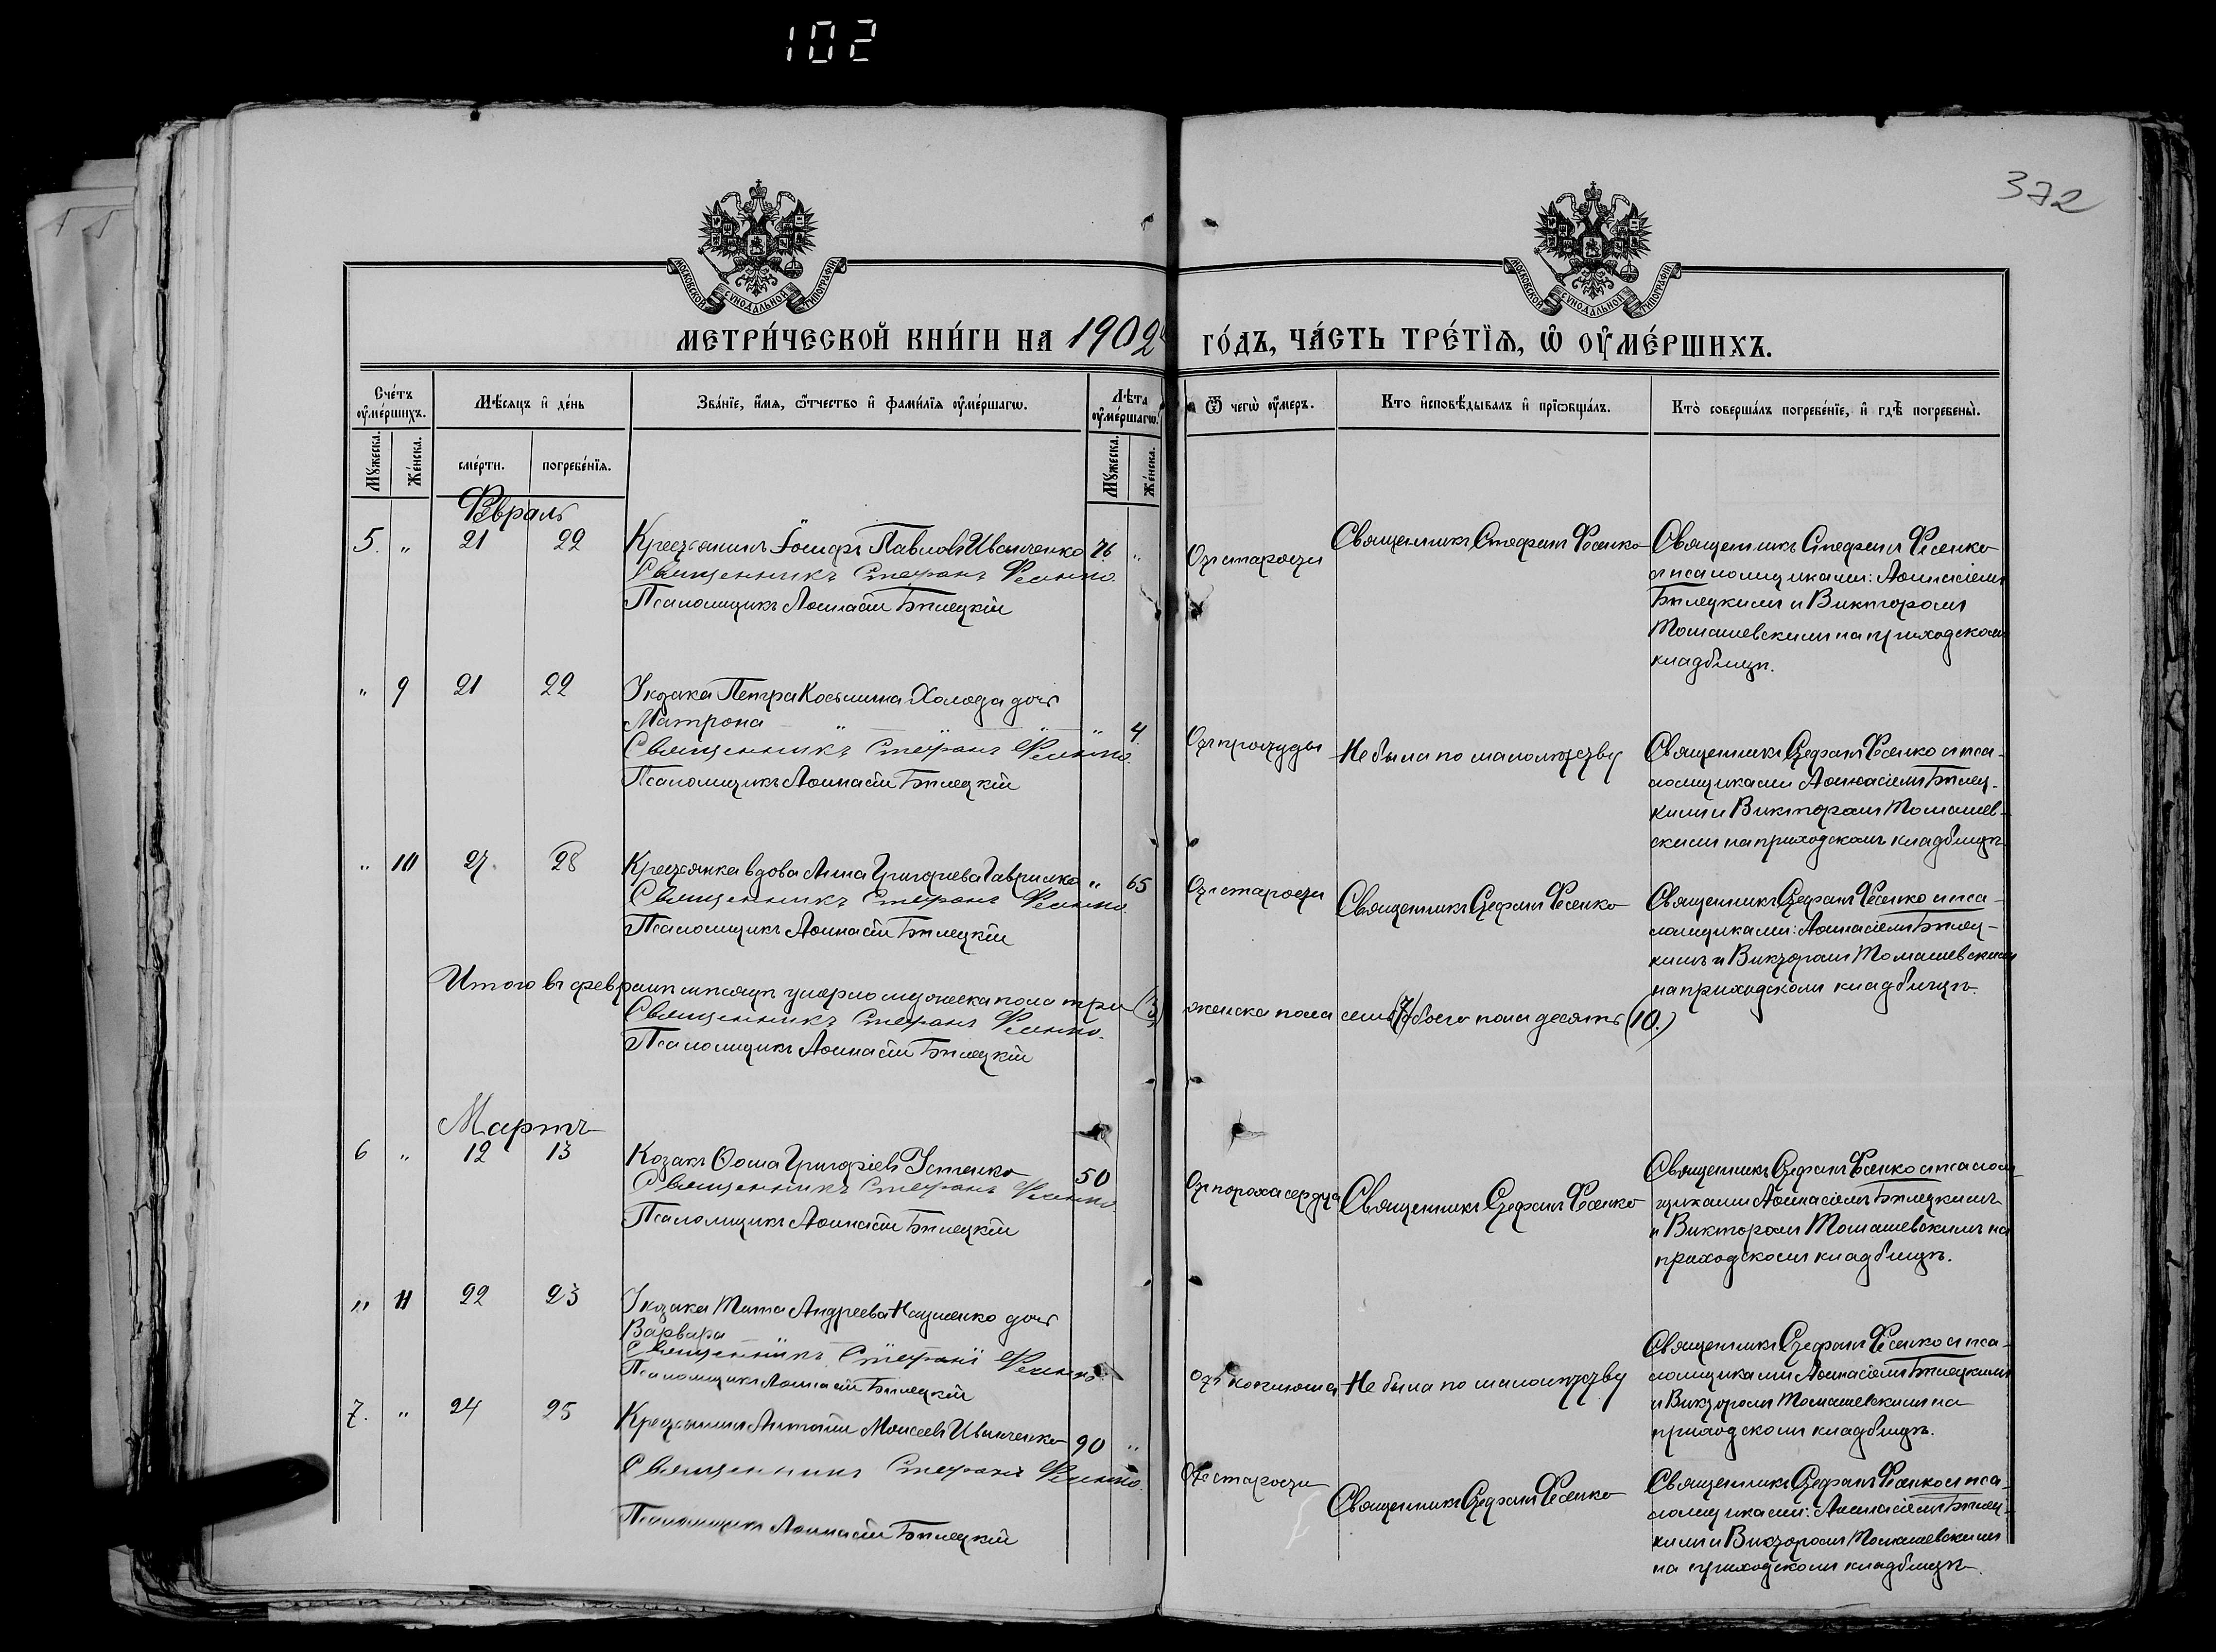 102
372
МОСКОВСКОЙ СУНОДАЛЬНОЙ ТИПОГРАФІИ
МОСКОВСКОЙ СУНОДАЛЬНОЙ ТИПОГРАФІИ
МЕТРИ́ЧЕСКОЙ КНИ́ГИ НА 1902 ГО́ДЪ, ЧА́СТЬ ТРЕ́ТЇѦ, Ѡ҆ ОУ҆МЕ́РШИХЪ.
Сче́тъ оу҆ме́ршихъ.
Мѣ́сѧцъ и҆ де́нь
Зва́нїе, и҆́мѧ, ѻ҆́тчество и҆ фами́лїѧ оу҆ме́ршагѡ.
Лѣ́та оу҆ме́ршагѡ.
Ѿ чегѡ̀ оу҆́меръ.
Кто̀ и҆сповѣ́дывалъ и҆ прїѡбща́лъ.
Кто̀ соверша́лъ погребе́нїе, и҆ гдѣ̀ погребены̀.
Мꙋ́жеска.
Же́нска.
сме́рти.
погребе́нїѧ.
Мꙋ́жеска.
Же́нска.
Февраль
5. " 21 22 Крестьянинъ Іосифъ Павловъ Иванченко 76 "
Священникъ Стефанъ Фесенко
Псаломщикъ Аѳанасій Бѣлецкій
Отъ старости
Священникъ Стефанъ Фесенко
Священникъ Стефанъ Фесенко
съ псаломщиками: Аѳанасіемъ
Бѣлецкимъ и Викторомъ
Томашевскимъ на приходскомъ
кладбищѣ.
" 9 21 22 У козака Петра Косьмина Холода дочь
Матрона " " 4
Священникъ Стефанъ Фесенко
Псаломщикъ Аѳанасій Бѣлецкій
Отъ простуды
Не была по малолѣтству
Священникъ Стефанъ Фесенко съ пса-
ломщиками Аѳанасіемъ Бѣлец-
кимъ и Викторомъ Томашев-
скимъ на приходскомъ кладбищѣ
" 10 27. 28 Крестьянка вдова Анна Григорьева Гаврилко " 65
Священникъ Стефанъ Фесенко
Псаломщикъ Аѳанасій Бѣлецкій
Отъ старости
Священникъ Стефанъ Фесенко
Священникъ Стефанъ Фесенко съ пса-
ломщиками: Аѳанасіемъ Бѣлец-
кимъ и Викторомъ Томашевскимъ
на приходскомъ кладбищѣ.
Итого въ февралѣ мѣсяцѣ умерло мужеска пола три (3) женска пола семь (7) обоего пола десять (10.)
Священникъ Стефанъ Фесенко.
Псаломщикъ Аѳанасій Бѣлецкій
Мартъ
6 " 12 13 Козакъ Ѳома Григоріевъ Устенко 50
Священникъ Стефанъ Фесенко
Псаломщикъ Аѳанасій Бѣлецкій
Отъ порока сердца
Священникъ Стефанъ Фесенко
Священникъ Стефанъ Фесенко съ псалом-
щиками Аѳанасіемъ Бѣлецкимъ
и Викторомъ Томашевскимъ на
приходскомъ кладбищѣ.
" 11 22 23 У козака Тита Андреева Науменко дочь
Варвара
Священникъ Стефанъ Фесенко
Псаломщикъ Аѳанасій Бѣлецкій
Отъ коклюша
Не была по малолѣтству
Священникъ Стефанъ Фесенко съ пса-
ломщиками Аѳанасіемъ Бѣлецкимъ
и Викторомъ Томашевскимъ на
приходскомъ кладбищѣ.
7. " 24 25 Крестьянинъ Антоній Моисеевъ Иванченко 90 "
Священникъ Стефанъ Фесенко.
Псаломщикъ Аѳанасій Бѣлецкій
Отъ старости
Священникъ Стефанъ Фесенко
Священникъ Стефанъ Фесенко съ пса-
ломщиками: Аѳанасіемъ Бѣлец-
кимъ и Викторомъ Томашевскимъ
на приходскомъ кладбищѣ.